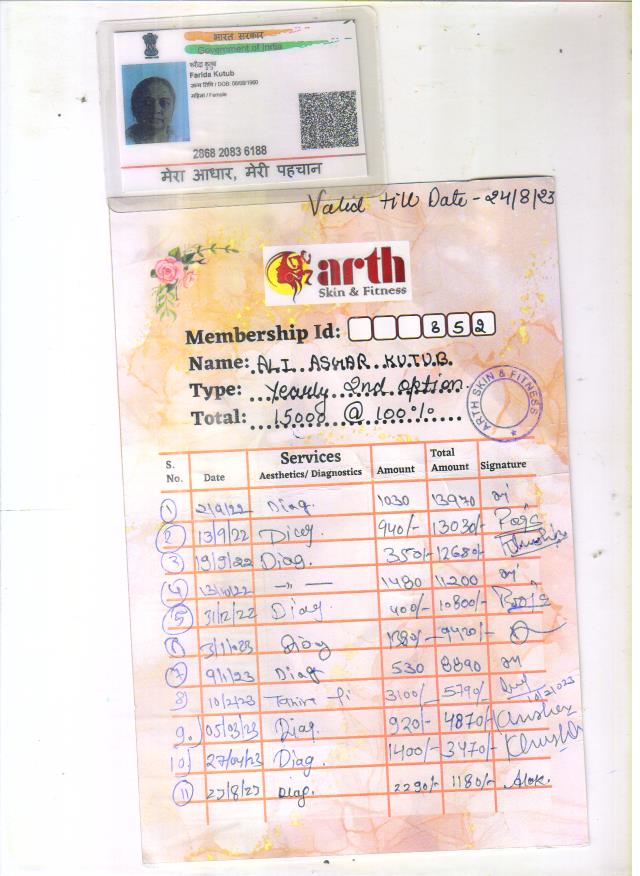 भारत सरकार
Government of India
फरीदा कुतुब
Farida Kutub
जन्म तिथि / DOB: 06/08/1960
महिला / Female
2868 2083 6188
मेरा आधार, मेरी पहचान
Valid till Date - 24/8/23
arth
Skin & Fitness
Membership Id: 852
Name: ALI ASGAR KUTUB.
Type: Yearly 2nd option.
Total: 15000 @ 100%
ARTH SKIN & FITNESS
S. No. Date Services Aesthetics/ Diagnostics Amount Total Amount Signature
1 2/9/22 Diag. 1030 13970
2 13/9/22 Diag. 940/- 13030/- Pooja
3 19/9/22 Diag. 350/- 12680/- Khushboo
4 13/10/22 -"- 1480 11200
5 31/12/22 Diag. 400/- 10800/- Pooja
6 3/1/2023 Diag 1380/- 9420/-
7 9/1/23 Diag 530 8890
8 10/2/23 3100/- 5790/- 10/2/023
9. 05/03/23 Diag. 920/- 4870/-
10 27/04/23 Diag. 1400/- 3470/-
11 23/8/23 Diag. 2290/- 1180/- Alok.